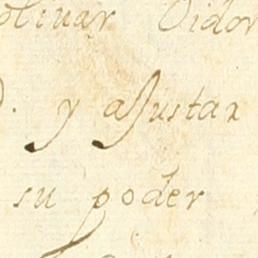 olivar Oidor
. y assustar
su poder